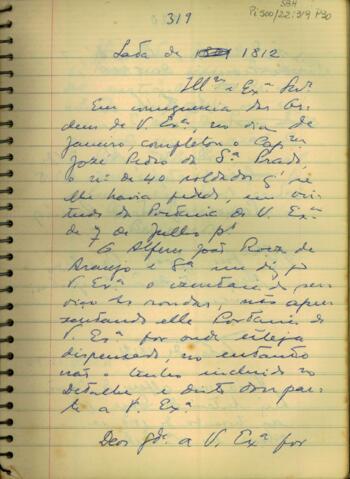 319
SBH
Pi 500/22:319 P30
Lata de 1812
Illmo e Exmo Snr.
Em consequencia das Or-
dens de V. Exª, no dia de
Janeiro, completou o Capm
José Pedro da Sª Prado,
o nº de 40 soldados q' se
lhe havia pedido, em vir-
tude da Portaria de V. Exª
de 7 de Julho pº
O Alferes João Roiz de
Araujo e Sª me diz q'
V. Exª o izentara do ser-
viço das rondas, não apre-
sentando elle Portaria de
V. Exª por onde esteja
dispensado, no entanto
não o tenho incluido no
Detalhe e disto dou par-
te a V. Exª
Deos gde a V. Exª por